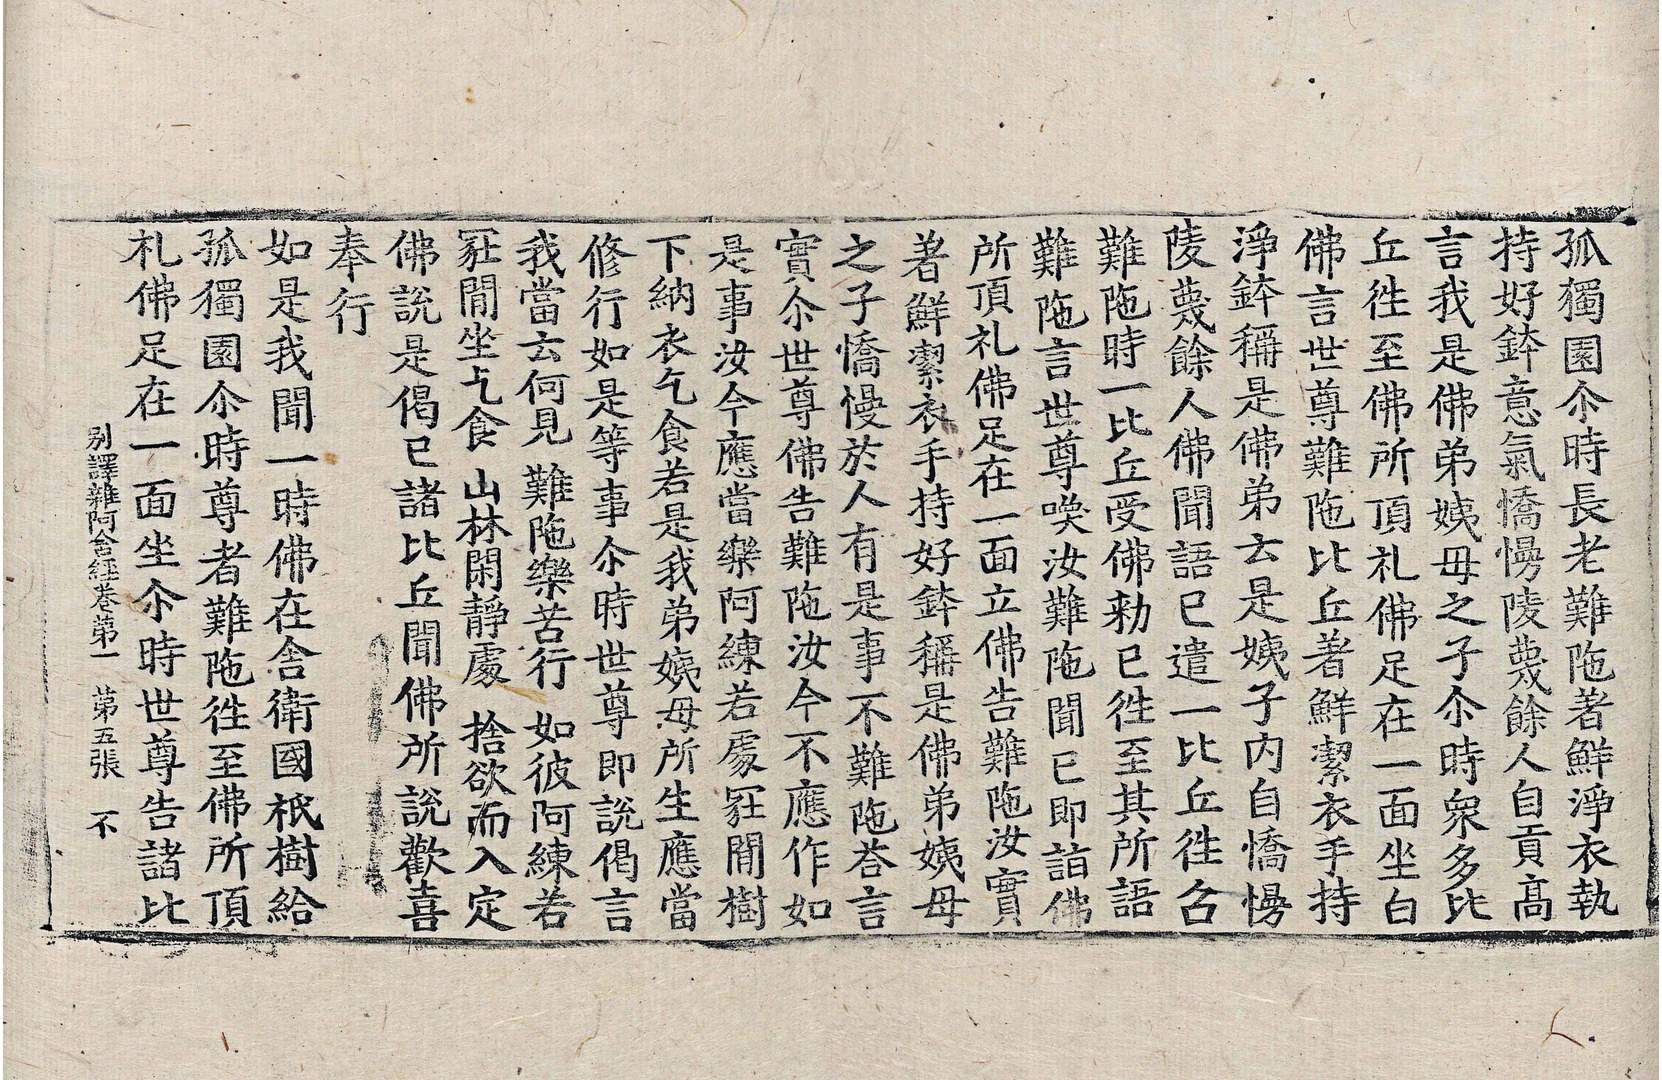 孤獨園尒時長老難陁著鮮淨衣執
持好鉢意氣憍慢陵蔑餘人自貢髙
言我是佛弟姨母之子尒時衆多比
丘徃至佛所頂礼佛足在一面坐白
佛言世尊難陁比丘著鮮潔衣手持
淨鉢稱是佛弟云是姨子内自憍慢
陵蔑餘人佛聞語已遣一比丘徃召
難陁時一比丘受佛勑已徃至其所語
難陁言世尊喚汝難陁聞已即詣佛
所頂礼佛足在一面立佛告難陁汝實
著鮮潔衣手持好鉢稱是佛弟姨母
之子憍慢於人有是事不難陁荅言
實尒世尊佛告難陁汝今不應作如
是事汝今應當樂阿練若處冡閒樹
下納衣乞食若是我弟姨母所生應當
修行如是等事尒時世尊即說偈言
我當云何見 難陁樂苦行 如彼阿練若
冡閒坐乞食 山林閑靜處 捨欲而入定
佛說是偈已諸比丘聞佛所說歡喜
奉行
如是我聞一時佛在舍衛國祇樹給
孤獨園尒時尊者難陁徃至佛所頂
礼佛足在一面坐尒時世尊告諸比
别譯雜阿含經卷苐一 苐五張 不